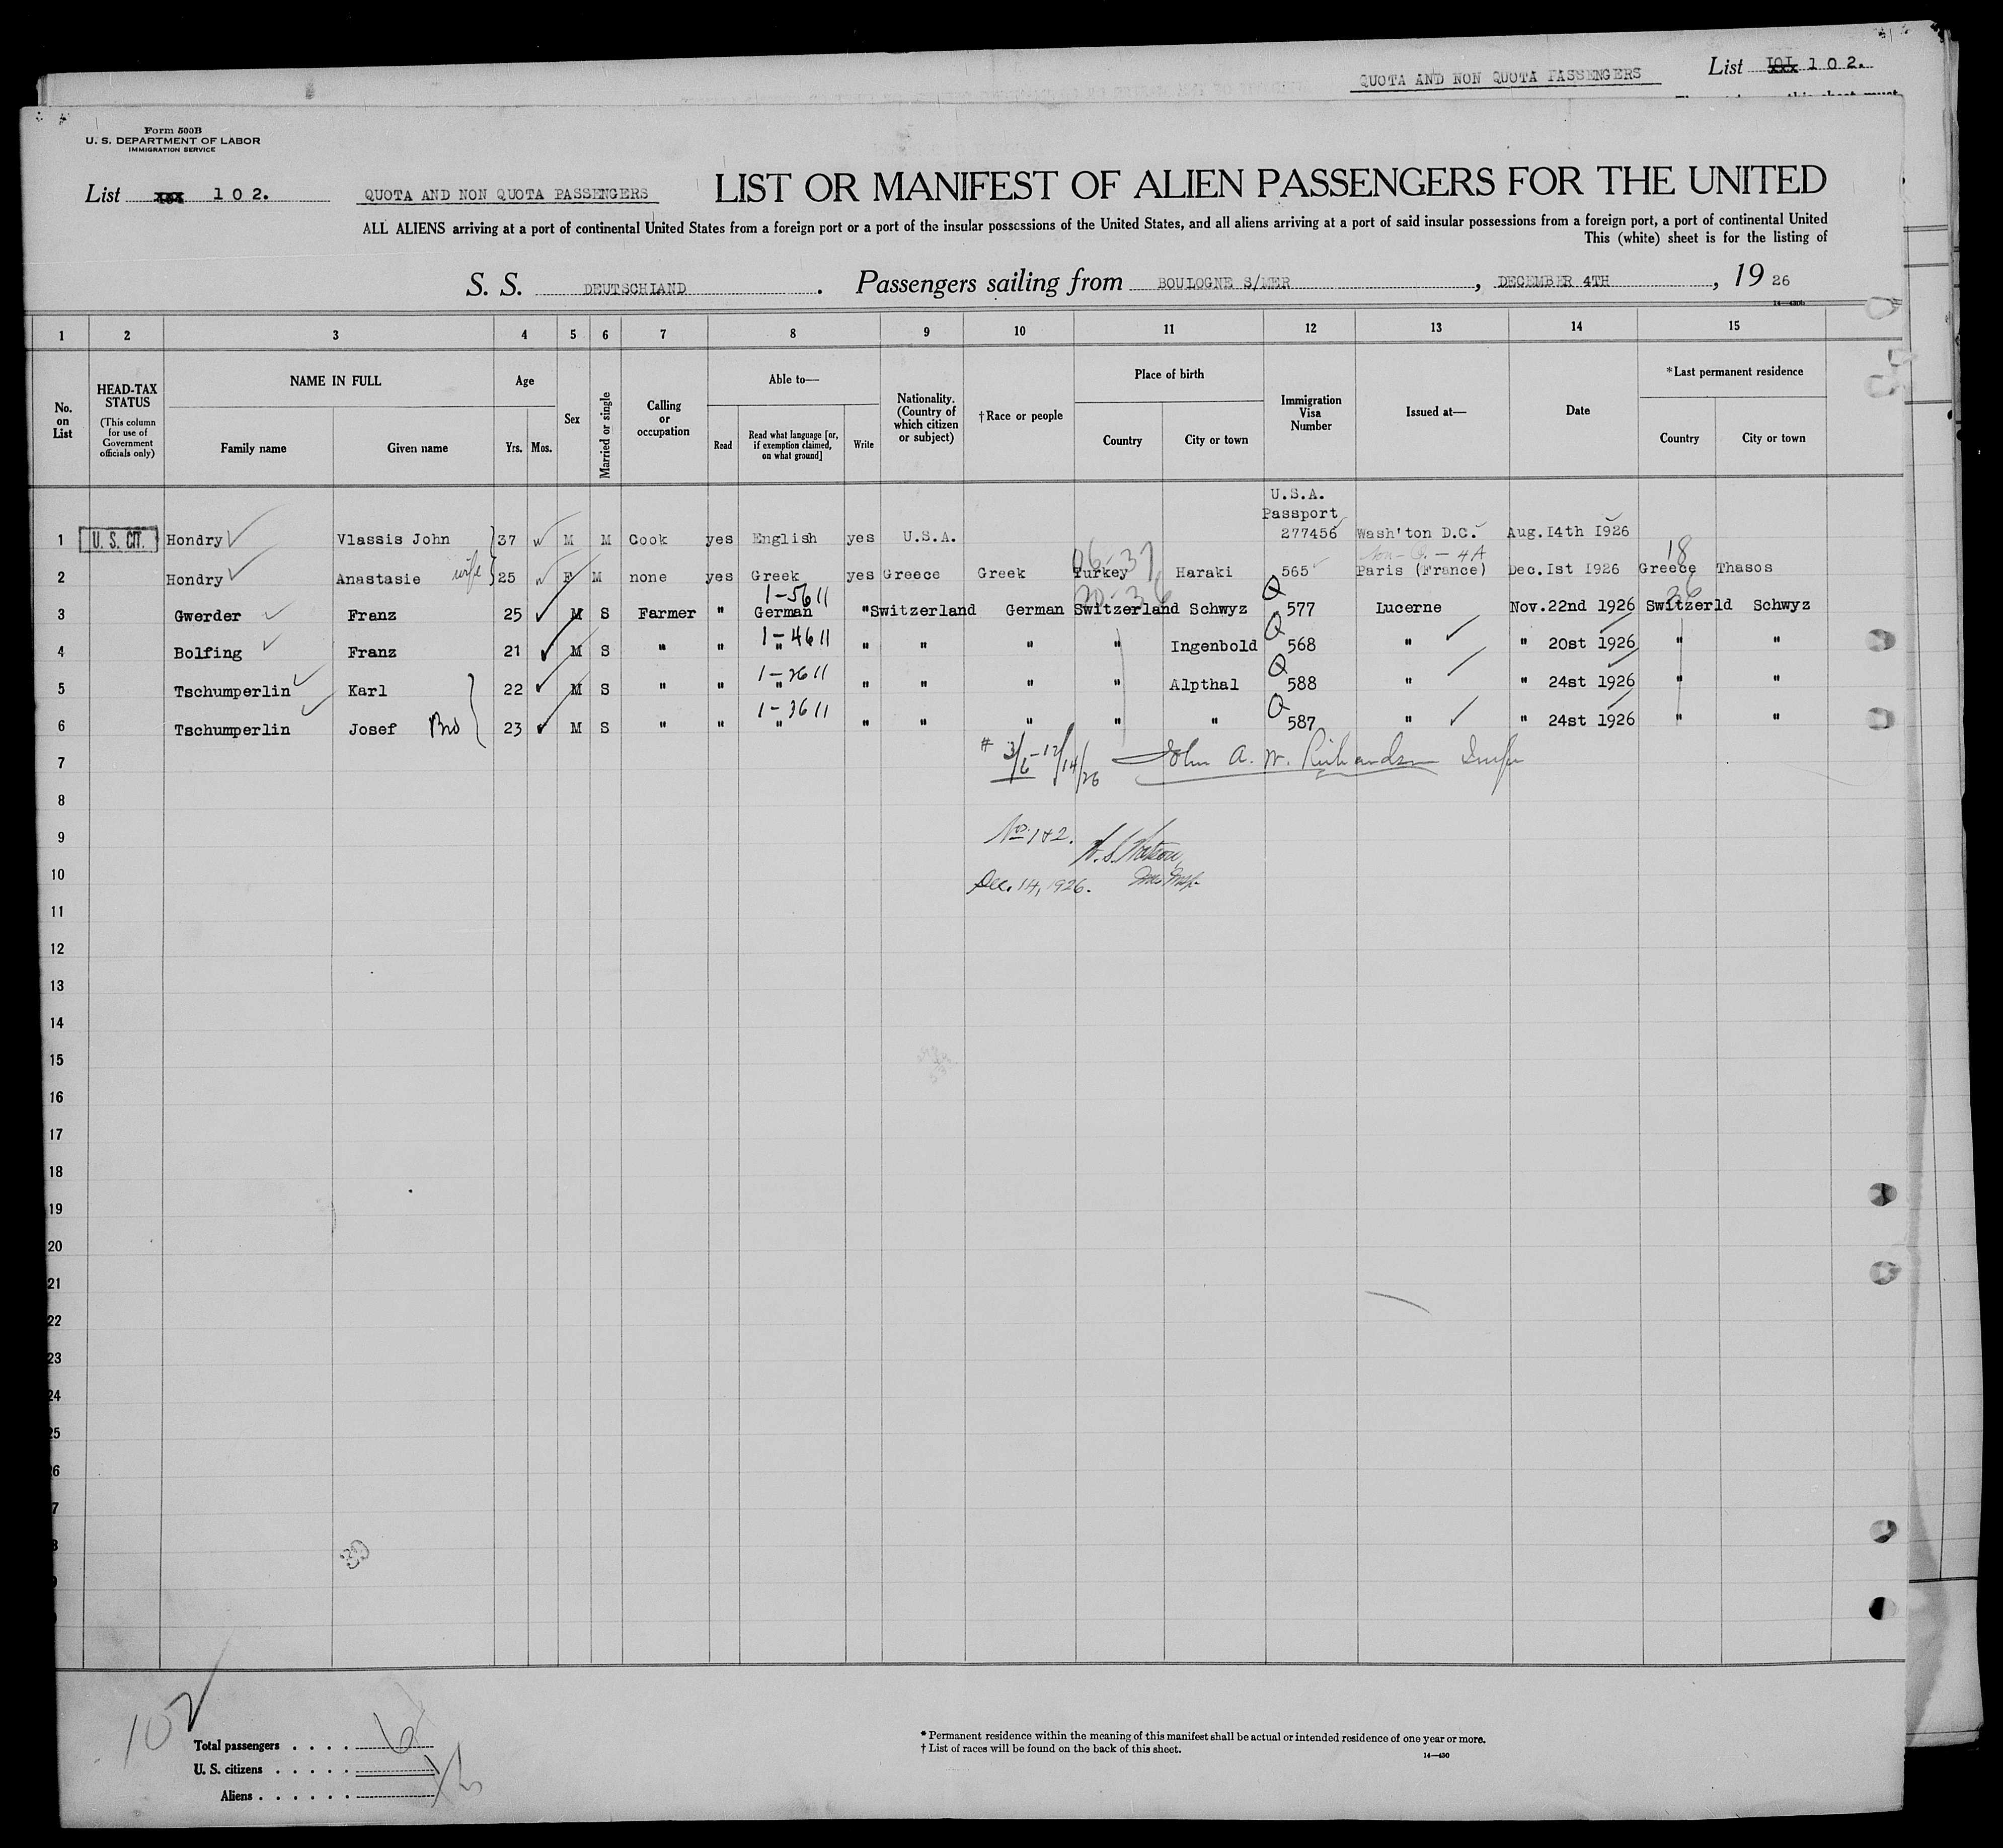 QUOTA AND NON QUOTA PASSENGERS List 101 102.
Form 500B
U. S. DEPARTMENT OF LABOR
IMMIGRATION SERVICE
List 102. QUOTA AND NON QUOTA PASSENGERS LIST OR MANIFEST OF ALIEN PASSENGERS FOR THE UNITED
ALL ALIENS arriving at a port of continental United States from a foreign port or a port of the insular possessions of the United States, and all aliens arriving at a port of said insular possessions from a foreign port, a port of continental United
This (white) sheet is for the listing of
S. S. DEUTSCHLAND. Passengers sailing from BOULOGNE S/MER, DECEMBER 4TH, 1926
1 2 3 4 5 6 7 8 9 10 11 12 13 14 15
No. on List
HEAD-TAX STATUS
(This column for use of Government officials only)
NAME IN FULL
Family name Given name
Age
Yrs. Mos.
Sex
Married or single
Calling or occupation
Able to—
Read Read what language [or, if exemption claimed, on what ground] Write
Nationality. (Country of which citizen or subject)
†Race or people
Place of birth
Country City or town
Immigration Visa Number
Issued at—
Date
*Last permanent residence
Country City or town
U.S.A.
Passport
1 U. S. CIT. Hondry Vlassis John 37 M M Cook yes English yes U.S.A. 277456 Wash'ton D.C. Aug.14th 1926
Non-Q.-4A
06-37 18
2 Hondry Anastasie wife 25 F M none yes Greek yes Greece Greek Turkey Haraki 565 Paris (France) Dec.Ist 1926 Greece Thasos
1-5611 Q
3 Gwerder Franz 25 M S Farmer " German " Switzerland German Switzerland Schwyz 577 Lucerne Nov.22nd 1926 Switzerld Schwyz
1-4611 Q
4 Bolfing Franz 21 M S " " " " " " " Ingenbold 568 " " 20st 1926 " "
1-2611 Q
5 Tschumperlin Karl 22 M S " " " " " " " Alpthal 588 " " 24st 1926 " "
1-3611 Q
6 Tschumperlin Josef Bro 23 M S " " " " " " " " 587 " " 24st 1926 " "
7 # 3/6-12/14/26 John A. W. Richardson Insp
8
9 No. 1 & 2. W. S. Watson,
10 Dec. 14, 1926. Imm Insp.
11
12
13
14
15
16
17
18
19
20
21
22
23
24
25
26
7
102
Total passengers . . . . 6
U. S. citizens . . . . .
Aliens . . . . . .
* Permanent residence within the meaning of this manifest shall be actual or intended residence of one year or more.
† List of races will be found on the back of this sheet.
14—430